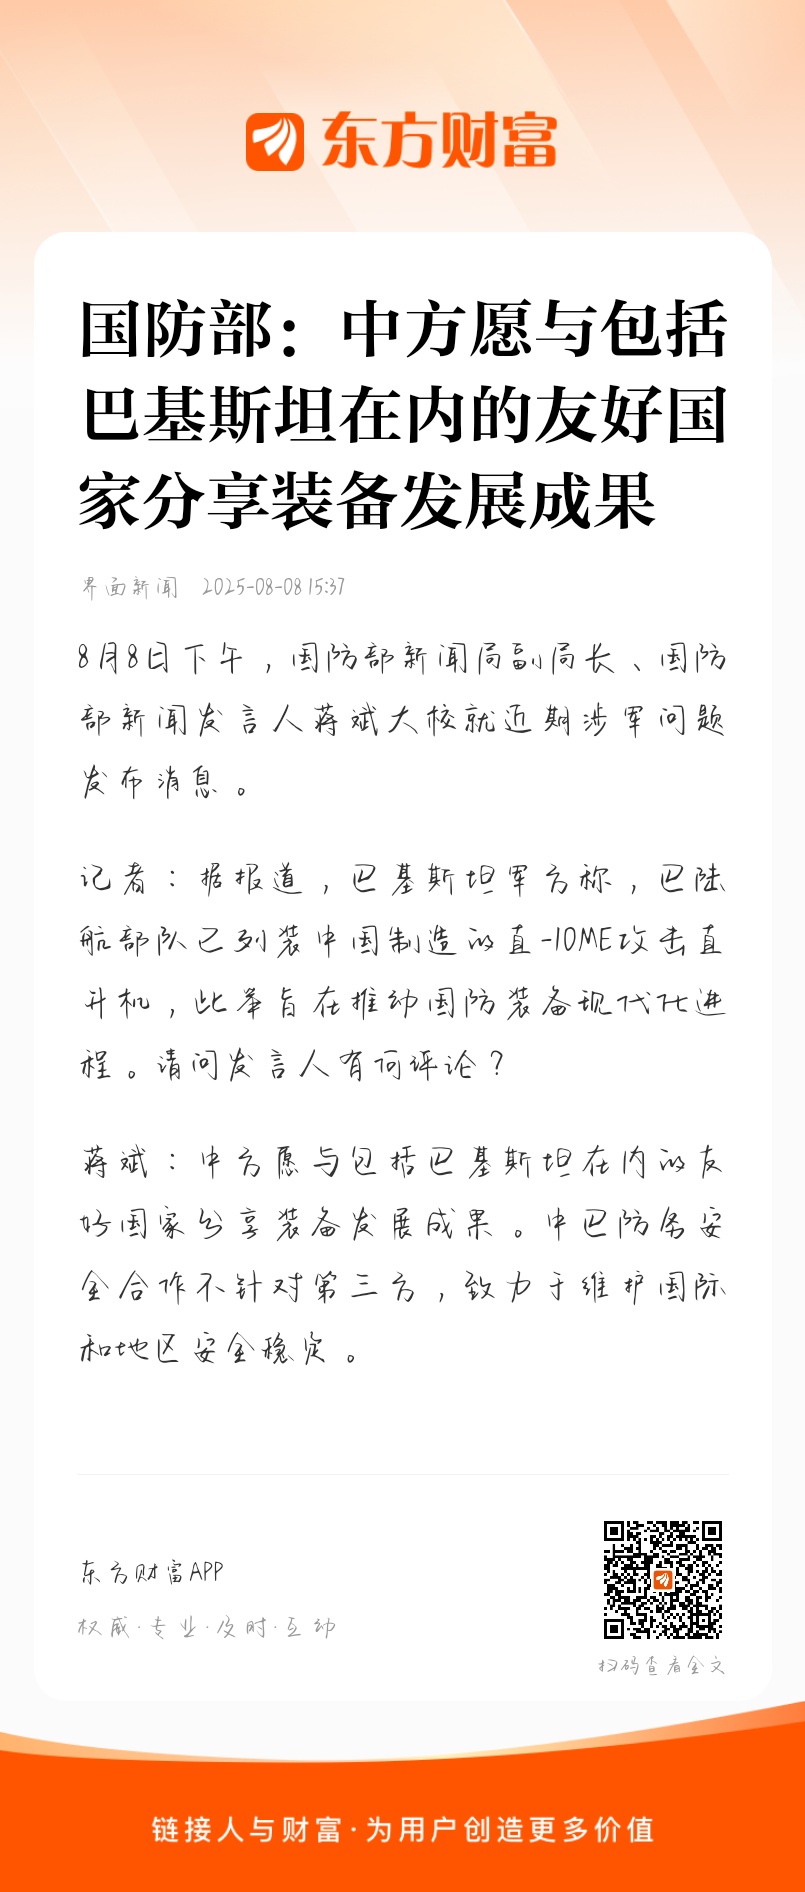 东方财富
国防部：中方愿与包括
巴基斯坦在内的友好国
家分享装备发展成果
界面新闻 2025-08-08 15:37
8月8日下午，国防部新闻局副局长、国防
部新闻发言人蒋斌大校就近期涉军问题
发布消息。
记者：据报道，巴基斯坦军方称，巴陆
航部队已列装中国制造的直-10ME攻击直
升机，此举旨在推动国防装备现代化进
程。请问发言人有何评论？
蒋斌：中方愿与包括巴基斯坦在内的友
好国家分享装备发展成果。中巴防务安
全合作不针对第三方，致力于维护国际
和地区安全稳定。
东方财富APP
权威·专业·及时·互动
扫码查看全文
链接人与财富·为用户创造更多价值